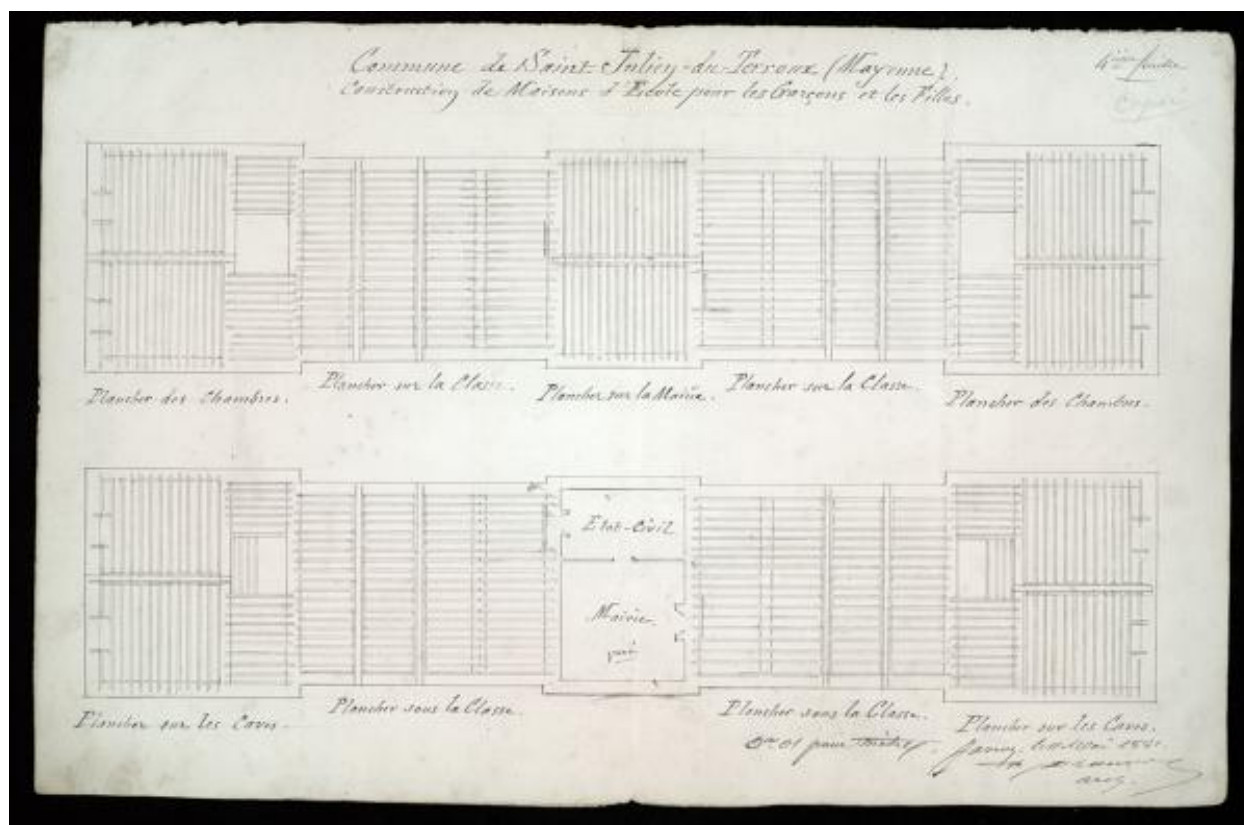 Commune de Saint-Julien-du-Terroux (Mayenne).
Construction de Maisons d'Ecole pour les Garçons et les Filles.
4ième feuille
Copie
Plancher des Chambres.
Plancher sur la Classe.
Plancher sur la Mairie.
Plancher sur la Classe.
Plancher des Chambres.
Etat-Civil
Mairie
pavé
Plancher sur les Caves.
Plancher sous la Classe.
Plancher sous la Classe.
Plancher sur les Caves.
0m 01 pour mètre.